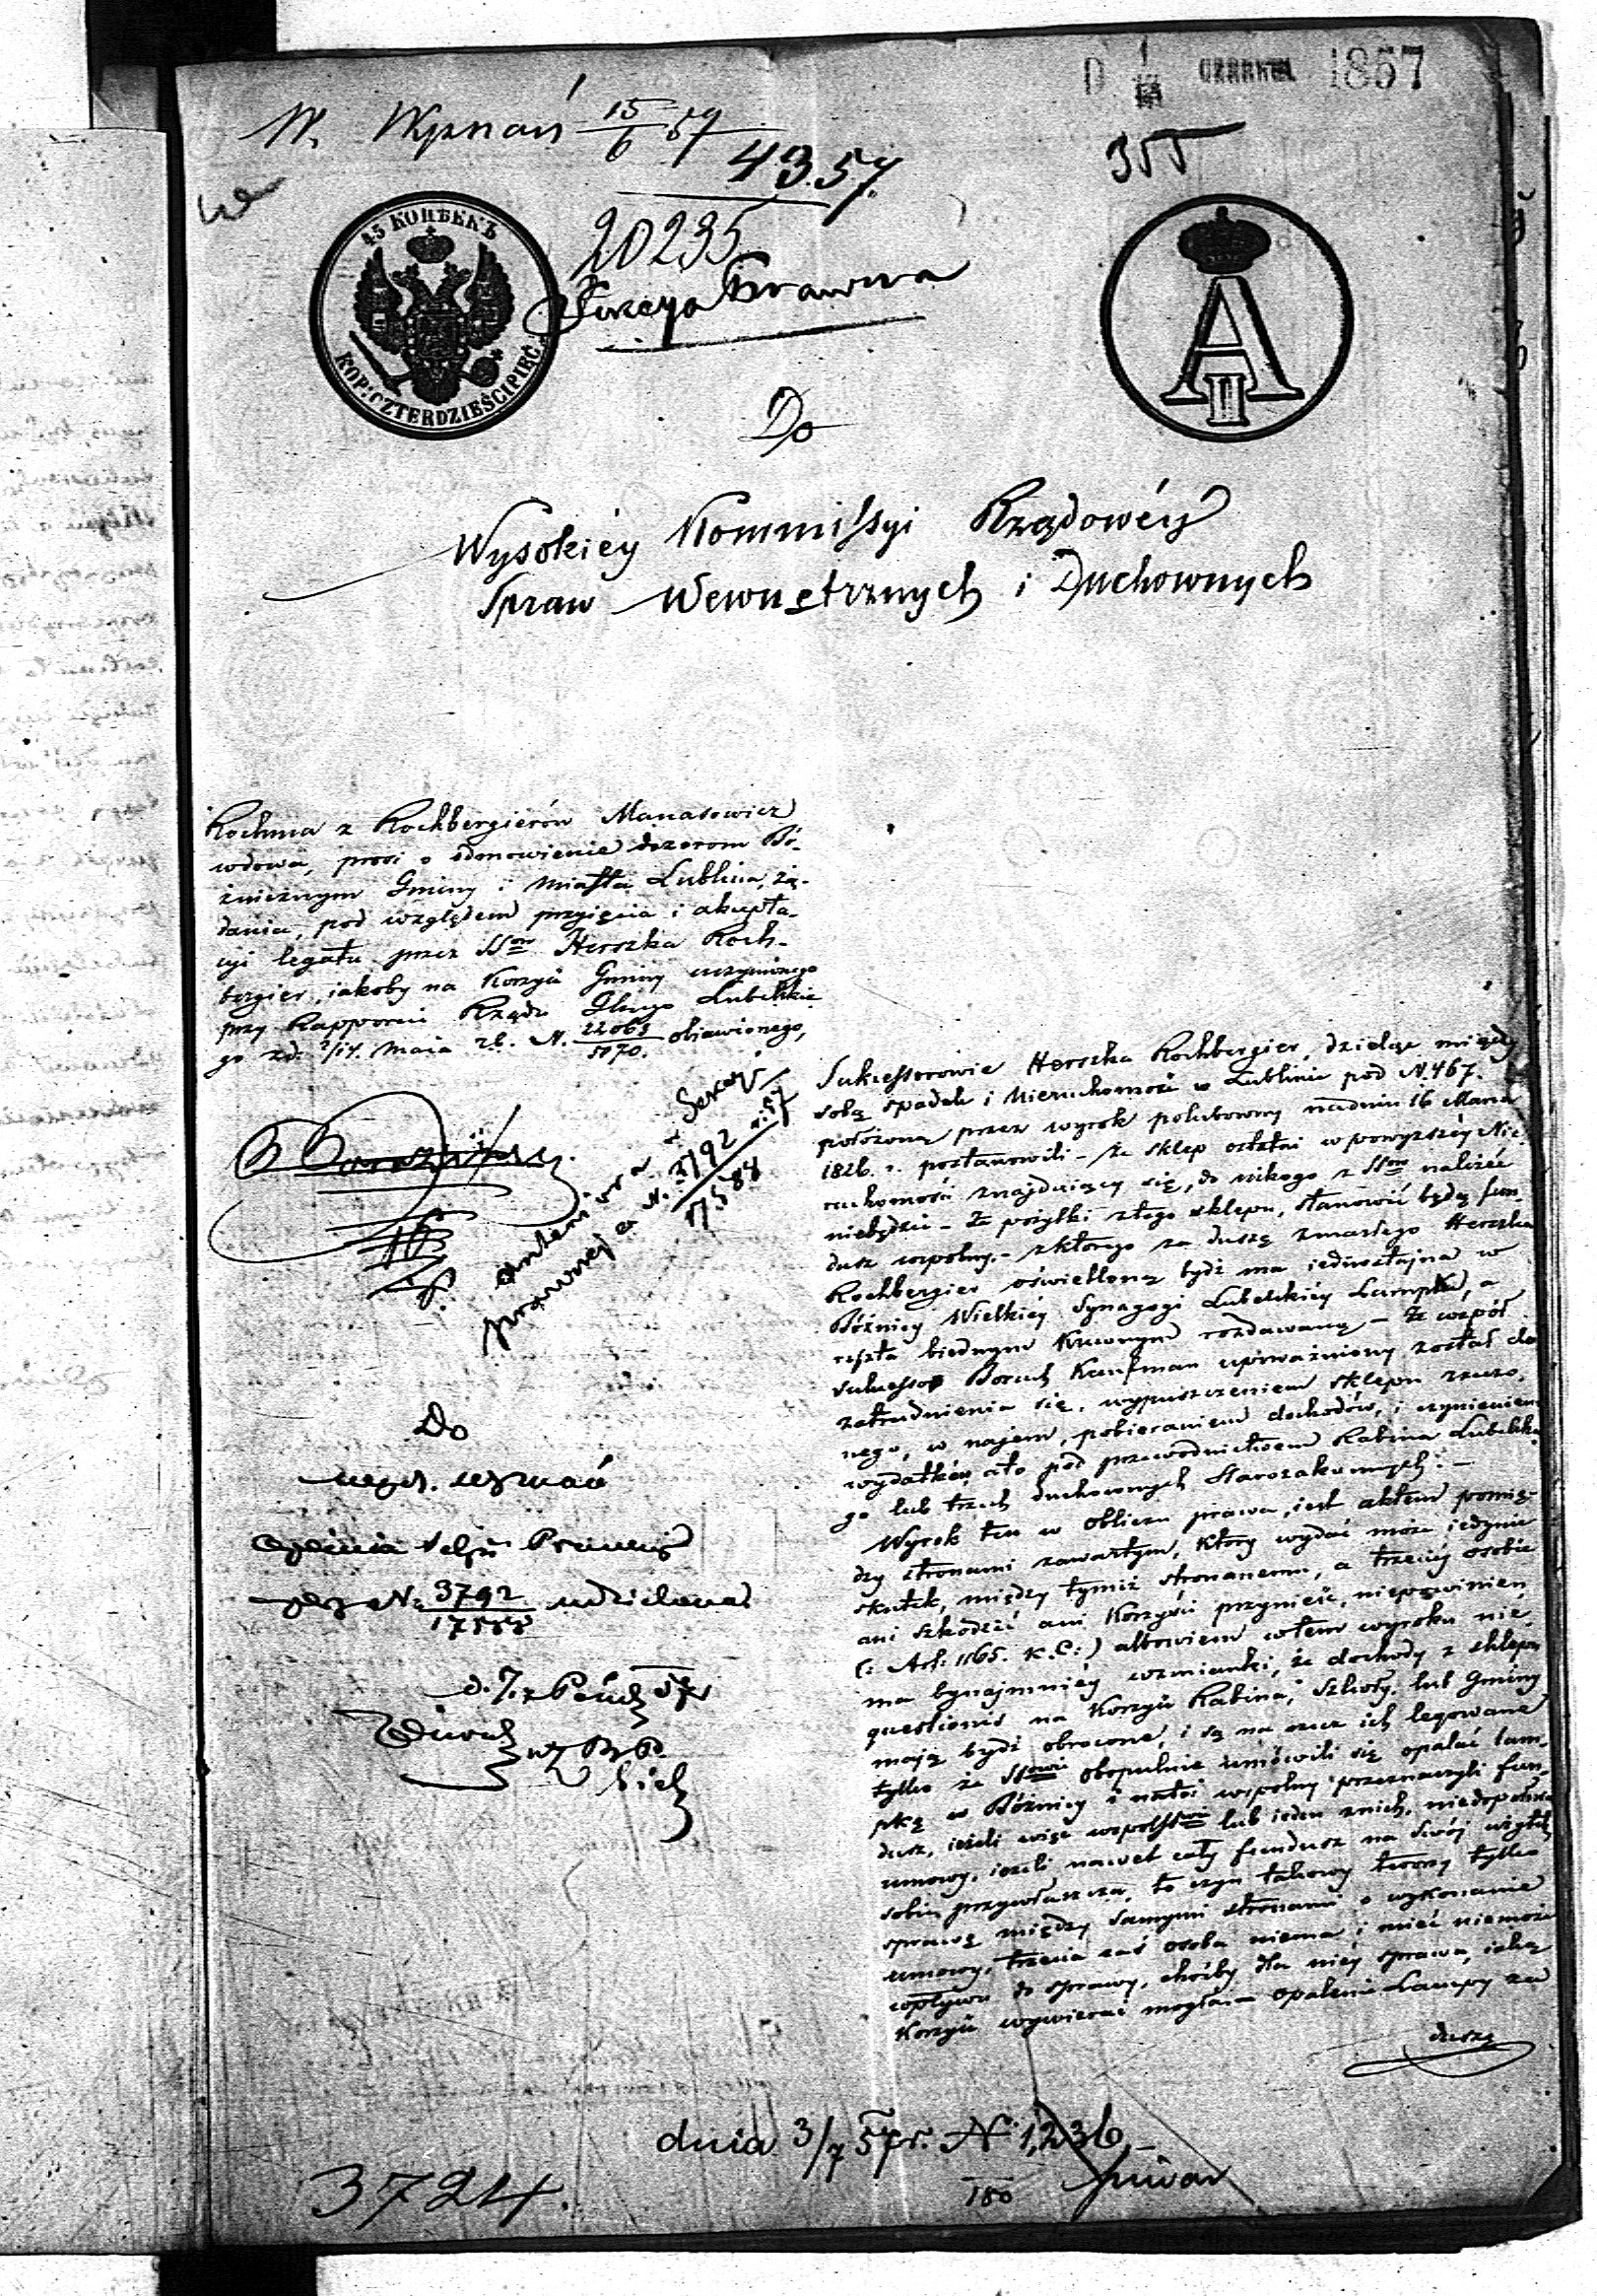 D 1/13 CZERWCA 1857
W. Wyznań 15/6 57
355
4357
20235
Sekcya Prawna
45 КОПѢЕКЪ
KOP: CZTERDZIEŚCI PIĘĆ
A II
Do
Wysokiéy Kommissyi Rządowéy
Spraw Wewnętrznych i Duchownych
Rochma z Rochbergierów Manasowicz
wdowa, prosi o odmowienie dozorom Bó-
żnicznym Gminy i Miasta Lublina, żą-
dania, pod względem przyięcia i akcepta-
cyi legatu przez SSów Herszka Roch-
bergier, iakoby na Korzyść Gminy uczynionego
przy Rapporcie Rządu Gbnego Lubelskie
go zd. 2/14 Maia rb. N. 22063/5170. obiawionego,
Anteriora w Sekcyi
prawnej a N. 3792 r. 57
17584
Do
Wydz. Wyznań
N. 3792 udzielone
dnia 3/7 57 r. N 1,236,
180
3724.
Sukcessorowie Herszka Rochbergier, dzieląc między
sobą spadek i Nieruchomość w Lublinie pod N. 467.
położoną przez wyrok polubowny nadniu 16 Marca
1826. r. postanowili – że sklep ostatni w powyższéy Nie-
ruchomości znajduiący się, do nikogo z SSów należéć
niebędzie – że pożytki ztego sklepu, stanowić będą fun-
dusz wspolny – zktórego za duszę zmarłego Herszka
Rochbergier oświetloną bydź ma iednostajna w
Bóżnicy Wielkiéy Synagogi Lubelskiéy Lampka, a
reszta biednym Krewnym rozdawaną – że współ
sukcessor Boruch Kaufman upoważniony został do
zatrudnienia się, wypuszczeniem sklepu rzeczo-
nego, w najem, pobieraniem dochodów, i czynieniem
wydatków, ato pod przewodnictwem Rabina Lubelskie
go lub trzech duchownych Starozakonnych: –
Wyrok ten w obliczu prawa, iest aktem pomię-
dzy stronami zawartym, który wydać może iedynie
skutek, między tymiż stronanemi, a trzeciéy osobie
ani szkodzić ani Korzyści przynieść, niepowinien
(: Art: 1165. K. C:) albowiem wtem wyroku nie
ma bynajmniéy wzmianki, że dochody z sklepu
questionis na Korzyść Rabina, Szkoły, lub Gminy
mają bydź obrocone, i są na rzecz ich legowane
tylko że SSowie obopulnie umówili się opalać lam-
pkę w Bóżnicy i natoi wspolny przeznaczyli fun-
dusz, ieżeli więc wspolSSowie lub ieden znich, niedopełnia
umowy, ieżeli nawet cały fundusz na swój użytek
sobie przywłaszcza, to czyn takowy tworzy tylko
sprawę między samymi stronami o wykonanie
umowy, trzecia zaś osoba niema i mieć niemoże
wpływu do sprawy, choćby dla niéy sprawa, iaką
Korzyść wywierać mogła: – opalenie Lampy za
duszę